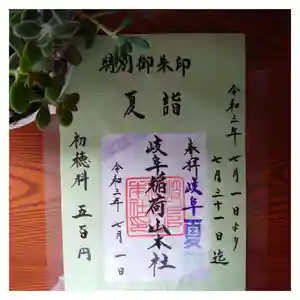 特別御朱印
夏詣
令和三年 七月一日より
七月三十一日迄
初穂料 五百円
奉拝 岐阜
夏詣
岐阜稲荷山本社
令和三年 七月一日